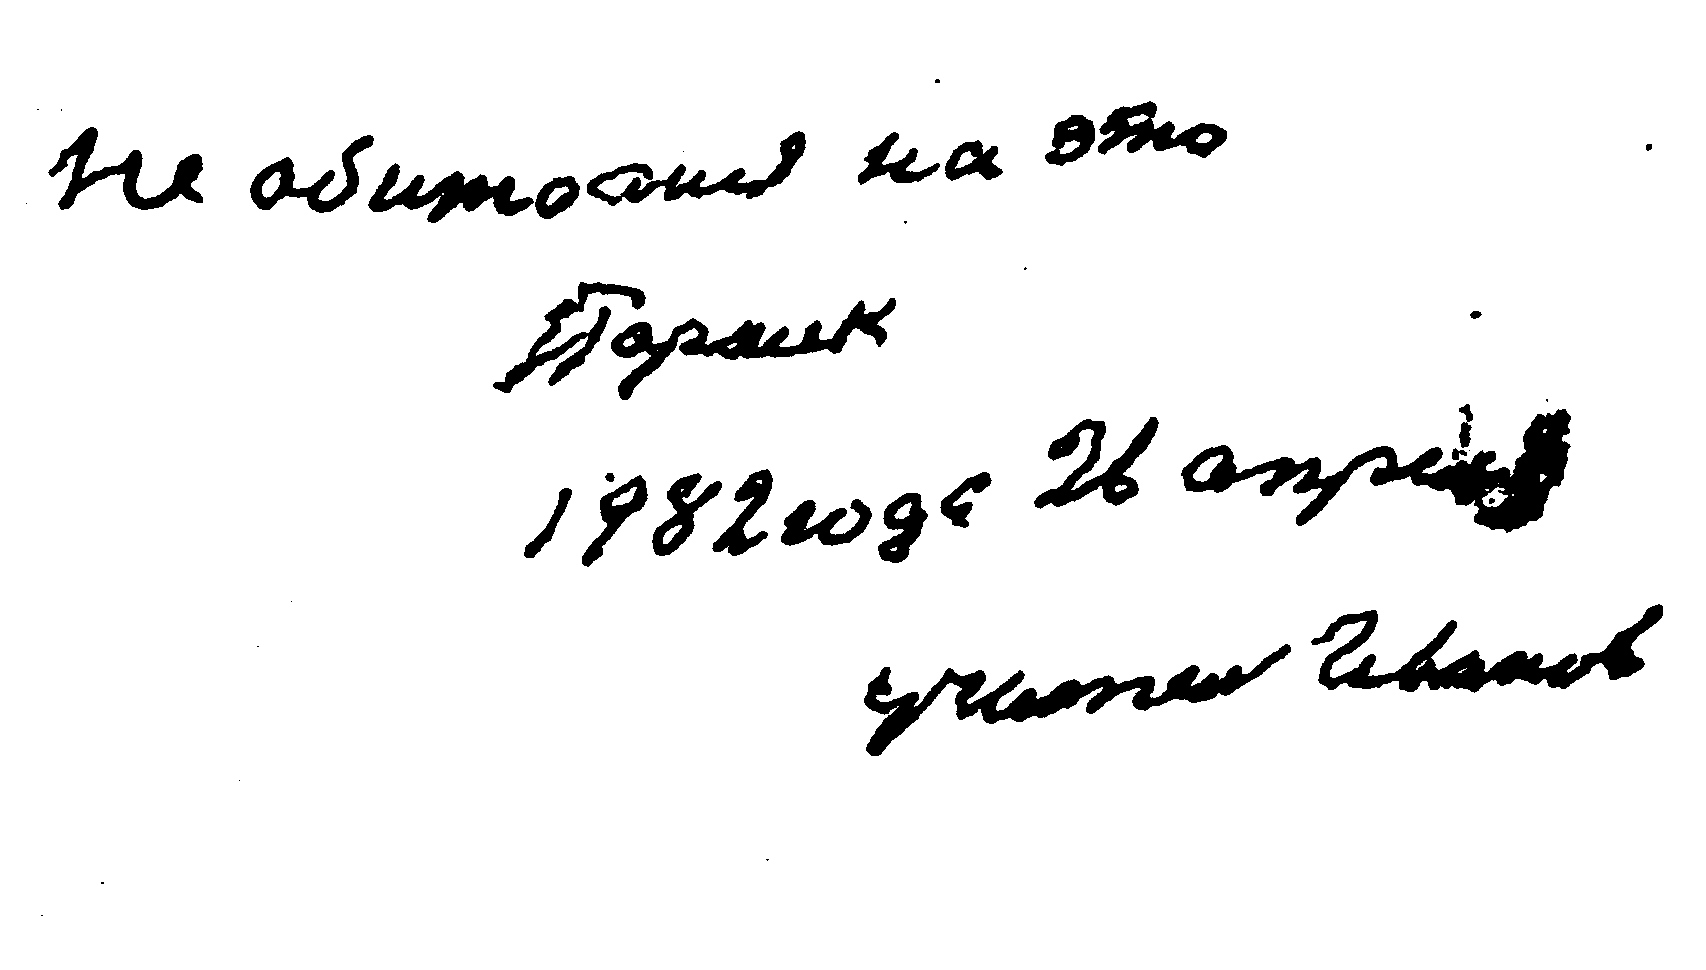 Не обитоаний на это
Парник
1982 года 26 апреля
учител Иванов